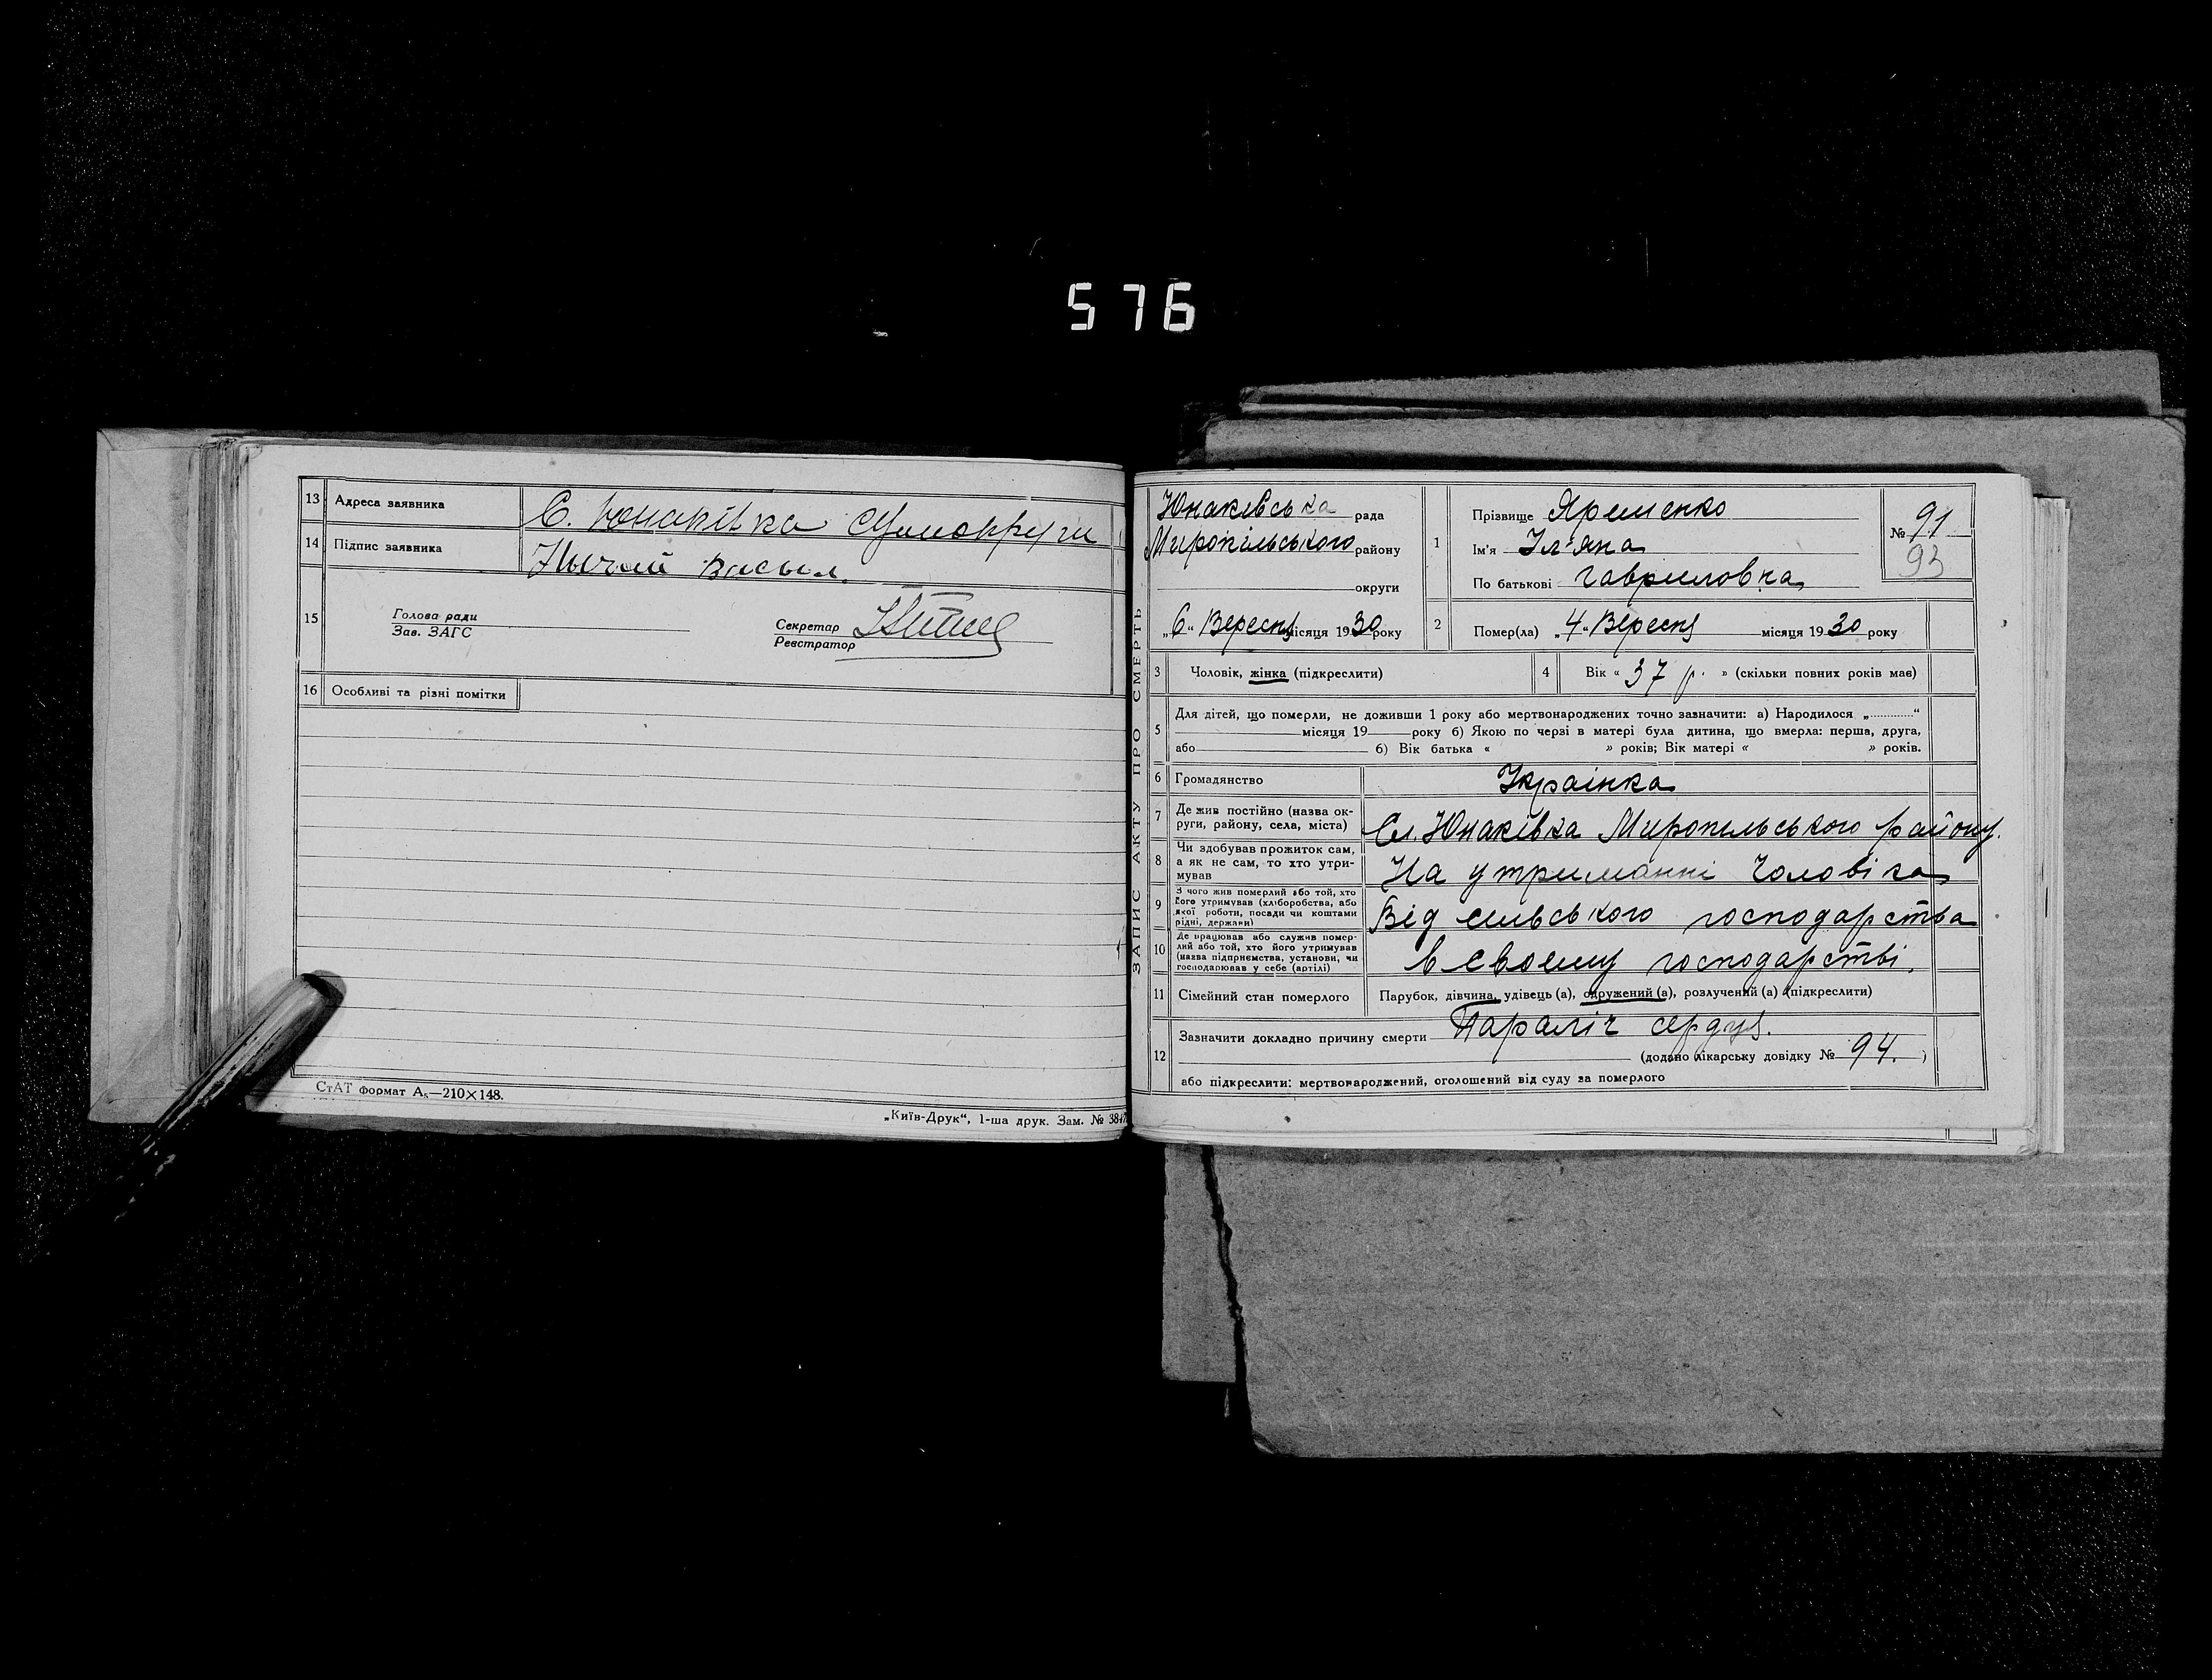 576
13 Адреса заявника С. Юнаківка Сумокруги
14 Підпис заявника Нычай Васыл.
15 Голова ради
Зав. ЗАГС
Секретар
Реєстратор
16 Особливі та різні помітки
СтАТ формат А₅—210×148.
„Київ-Друк“, 1-ша друк. Зам. №
ЗАПИС АКТУ ПРО СМЕРТЬ
Юнаківська рада
Миропільського району
округи
„6“ Вересня місяця 1930 року
1 Прізвище Яременко
Ім'я
По батькові Гавриловна
№ 91
93
2 Помер(ла) „4“ Вересня місяця 1930 року
3 Чоловік, жінка (підкреслити)
4 Вік « 37 р. » (скільки повних років має)
5 Для дітей, що померли, не доживши 1 року або мертвонароджених точно зазначити: а) Народилося „............“
місяця 19 року б) Якою по черзі в матері була дитина, що вмерла: перша, друга,
або б) Вік батька « » років; Вік матері « » років.
6 Громадянство Українка
7 Де жив постійно (назва ок-
руги, району, села, міста) Сл. Юнаківка Миропільського району.
8 Чи здобував прожиток сам,
а як не сам, то хто утри-
мував На утриманні Чоловіка
9 З чого жив померлий або той, хто
його утримував (хліборобства, або
якої роботи, посади чи коштами
рідні, держави) Від сильського господарства
10 Де працював або служив помер-
лий або той, хто його утримував
(назва підприємства, установи, чи
господарював у себе (артілі) в своєму господарстві.
11 Сімейний стан померлого Парубок, дівчина, удівець (а), одружений (а), розлучений (а) (підкреслити)
12 Зазначити докладно причину смерти Параліч сердця.
(додано лікарську довідку № 94. )
або підкреслити: мертвонароджений, оголошений від суду за померлого